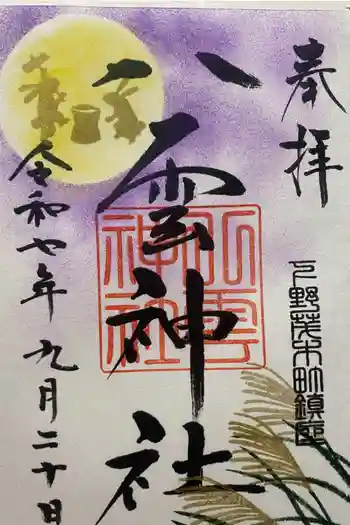 奉拝
下野茂木町鎮座
八雲神社
八雲神社
令和七年九月二十日